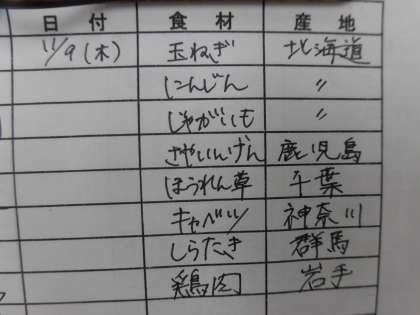 日付 食材 産地
11/9(木) 玉ねぎ 北海道
にんじん 〃
じゃがいも 〃
さやいんげん 鹿児島
ほうれん草 千葉
キャベツ 神奈川
しらたき 群馬
鶏肉 岩手